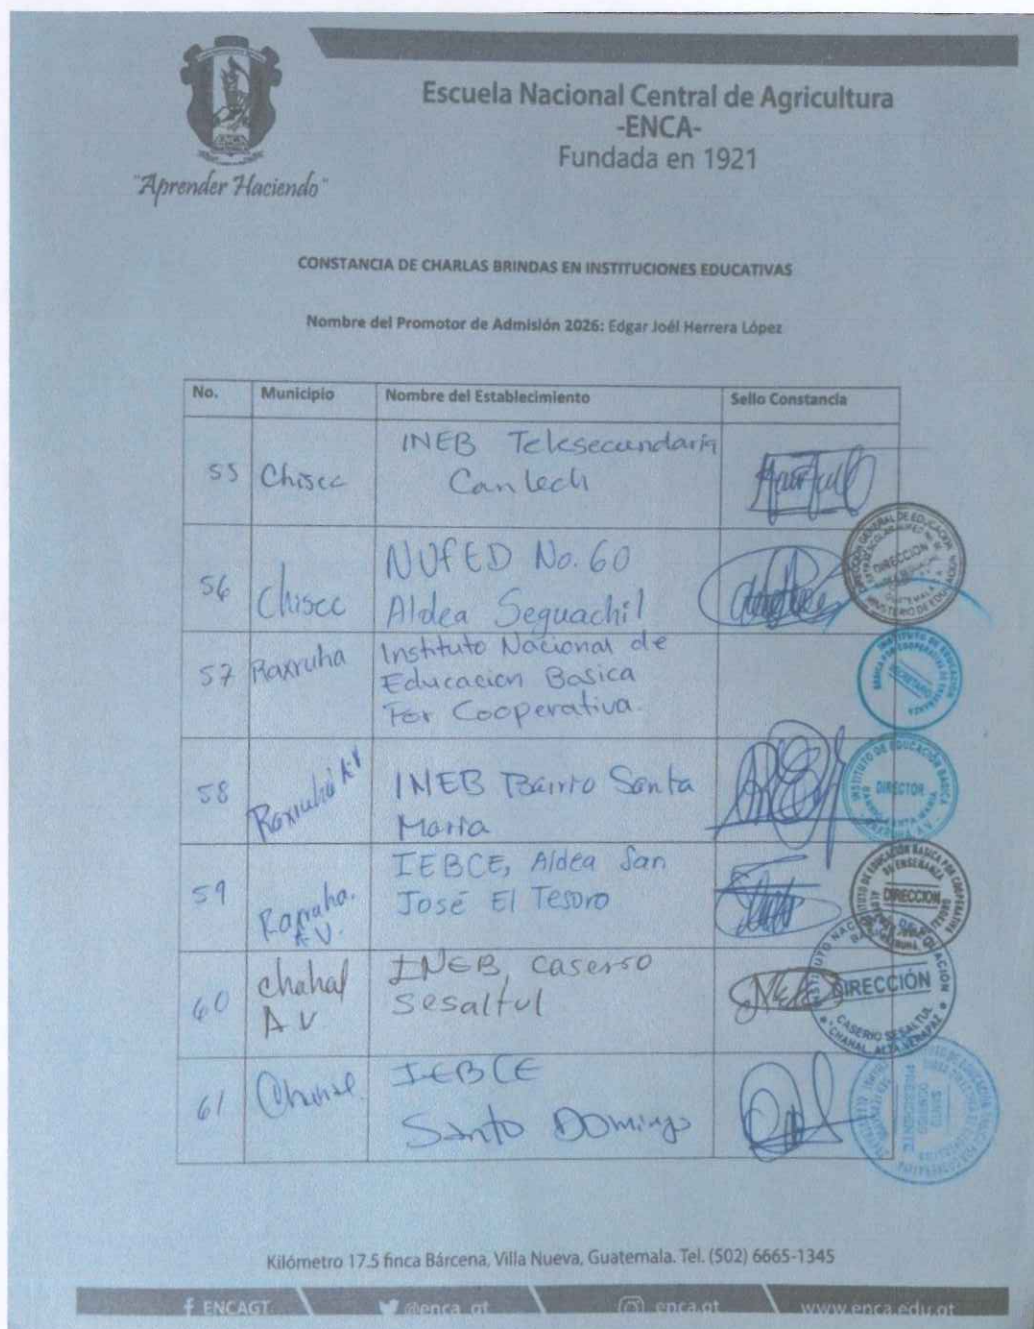 Escuela Nacional Central de Agricultura
-ENCA-
Fundada en 1921
"Aprender Haciendo"
CONSTANCIA DE CHARLAS BRINDAS EN INSTITUCIONES EDUCATIVAS
Nombre del Promotor de Admisión 2026: Edgar Joél Herrera López
No. Municipio Nombre del Establecimiento Sello Constancia
55 Chisec INEB Telesecundaria
Canlech
56 Chisec NUFED No. 60
Aldea Seguachil
DIRECCION
57 Raxruha Instituto Nacional de
Educacion Basica
Por Cooperativa.
SECRETARIO
58 Raxruhá A.V INEB Barrio Santa
Maria
INSTITUTO DE EDUCACIÓN BASICA
DIRECTOR
59 Raxruha. A.V. IEBCE, Aldea San
José El Tesoro
DIRECCION
60 chahal
A V
INEB, caserio
Sesaltul
DIRECCIÓN
CASERIO SESALTUL
CHAHAL, ALTA VERAPAZ
61 Chahal IEBCE
Santo Domingo
Kilómetro 17.5 finca Bárcena, Villa Nueva, Guatemala. Tel. (502) 6665-1345
ENCAGT @enca_gt enca.gt www.enca.edu.gt